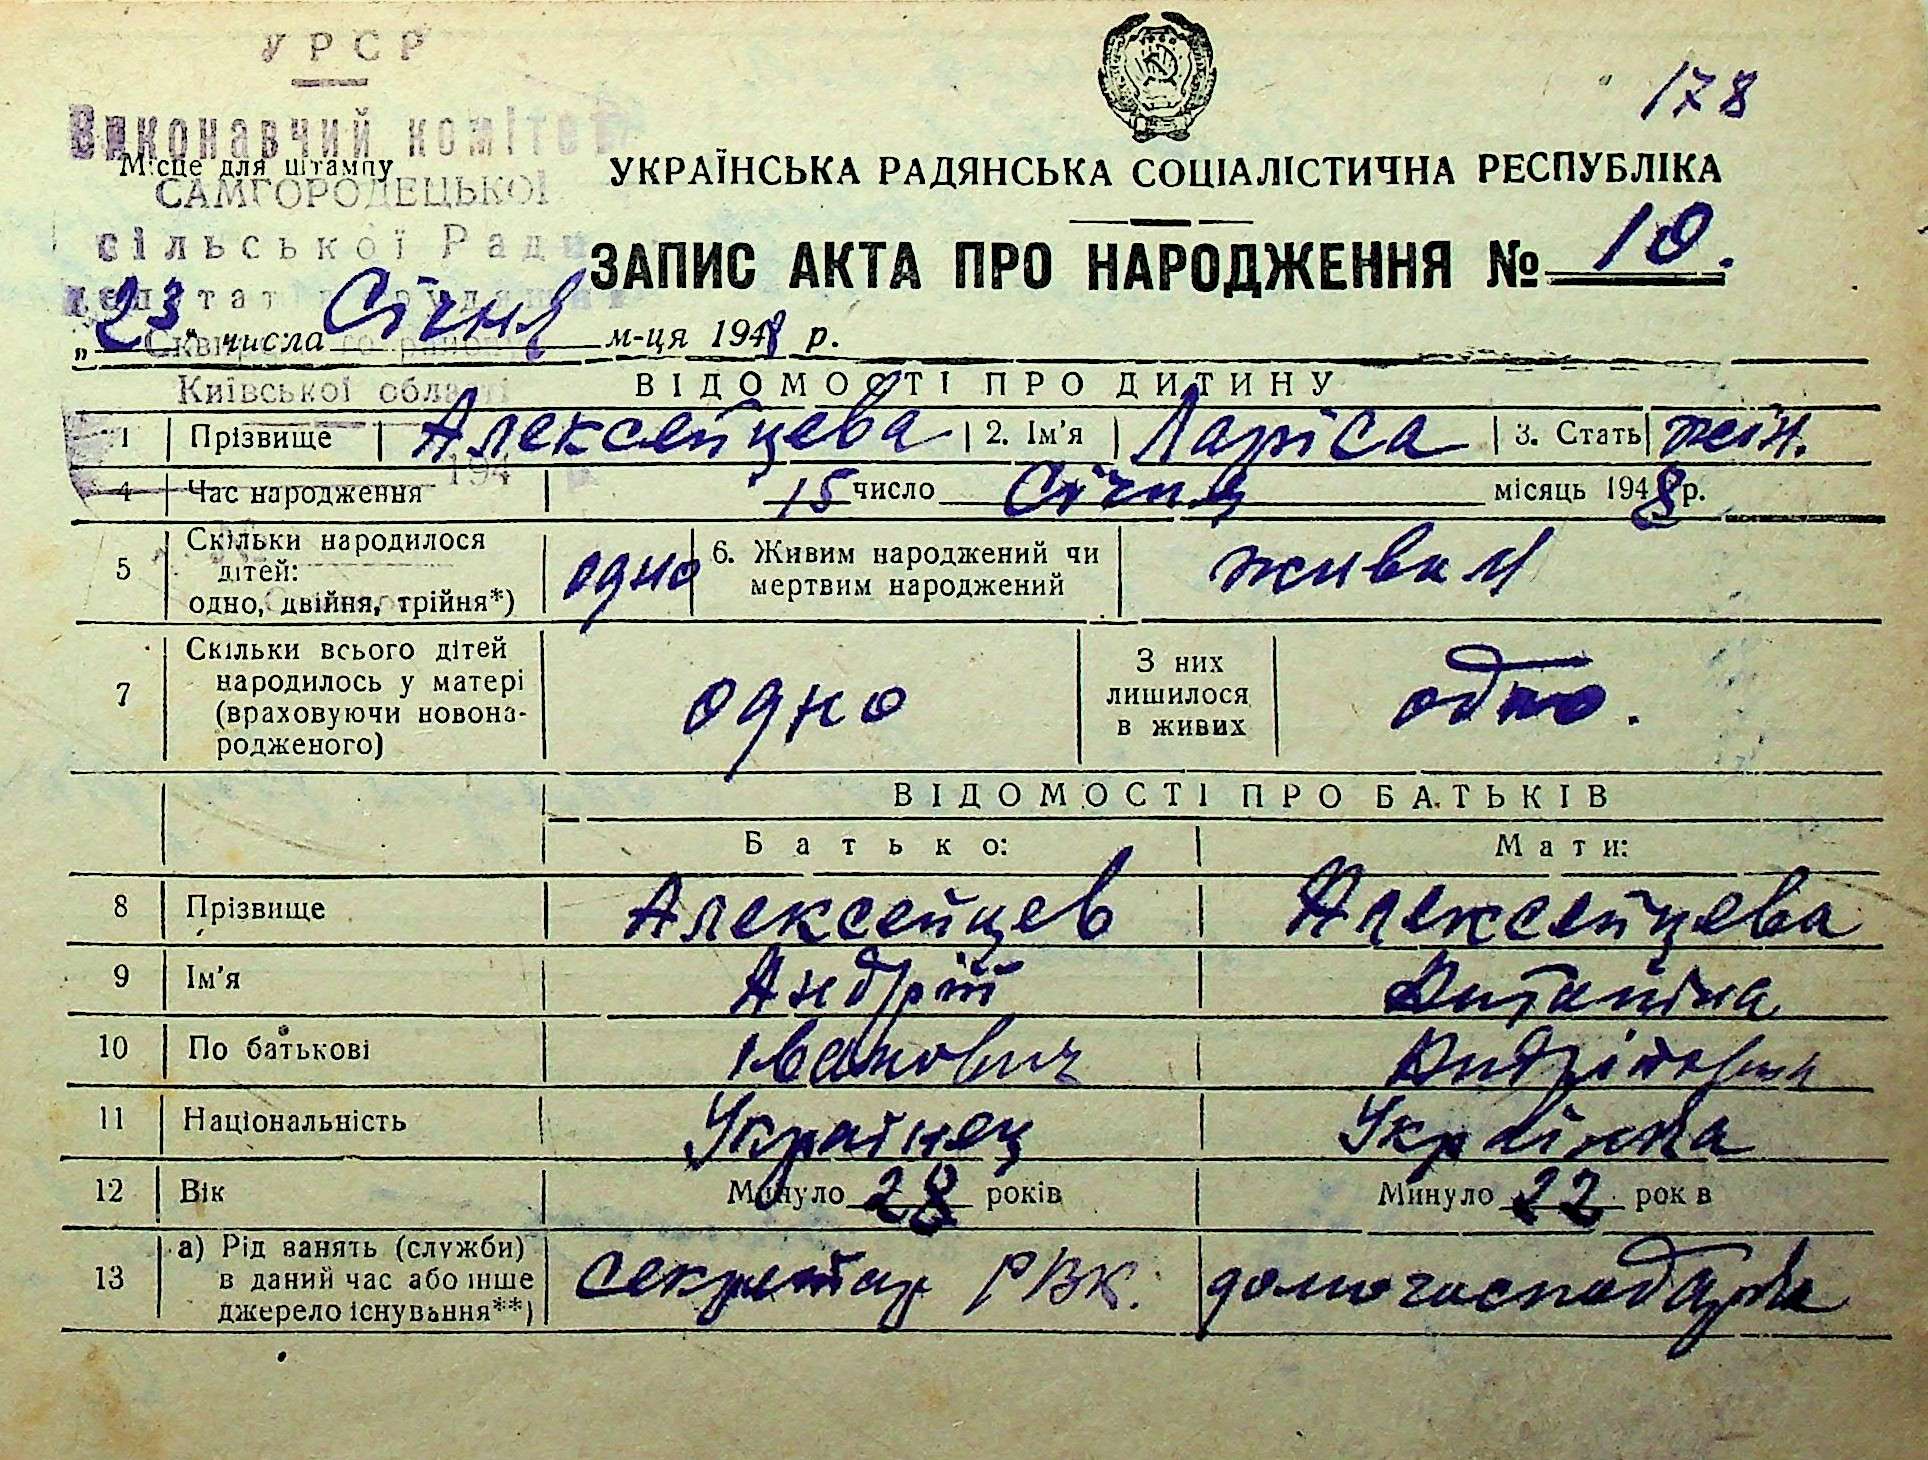 УРСР
178
Виконавчий комітет
Місце для штампу
УКРАЇНСЬКА РАДЯНСЬКА СОЦІАЛІСТИЧНА РЕСПУБЛІКА
САМГОРОДЕЦЬКОЇ
сільської Ради
ЗАПИС АКТА ПРО НАРОДЖЕННЯ № 10.
депутатів трудящих
„23" числа Січня м-ця 1948 р.
Сквирського району
Київської області
ВІДОМОСТІ ПРО ДИТИНУ
1 Прізвище Алексейцева 2. Ім'я Ларіса 3. Стать жін.
194
4 Час народження 15 число Січня місяць 1948 р.
5 Скільки народилося дітей: одно, двійня, трійня*) одно 6. Живим народжений чи мертвим народжений живим
7 Скільки всього дітей народилось у матері (враховуючи новонародженого) одно З них лишилося в живих одно.
ВІДОМОСТІ ПРО БАТЬКІВ
Батько: Мати:
8 Прізвище Алексейцев Алексейцева
9 Ім'я Андрій
10 По батькові Іванович
11 Національність Українец Українка
12 Вік Минуло 28 років Минуло 22 рок в
13 а) Рід занять (служби) в даний час або інше джерело існування**) секретар РВК. домогосподарка